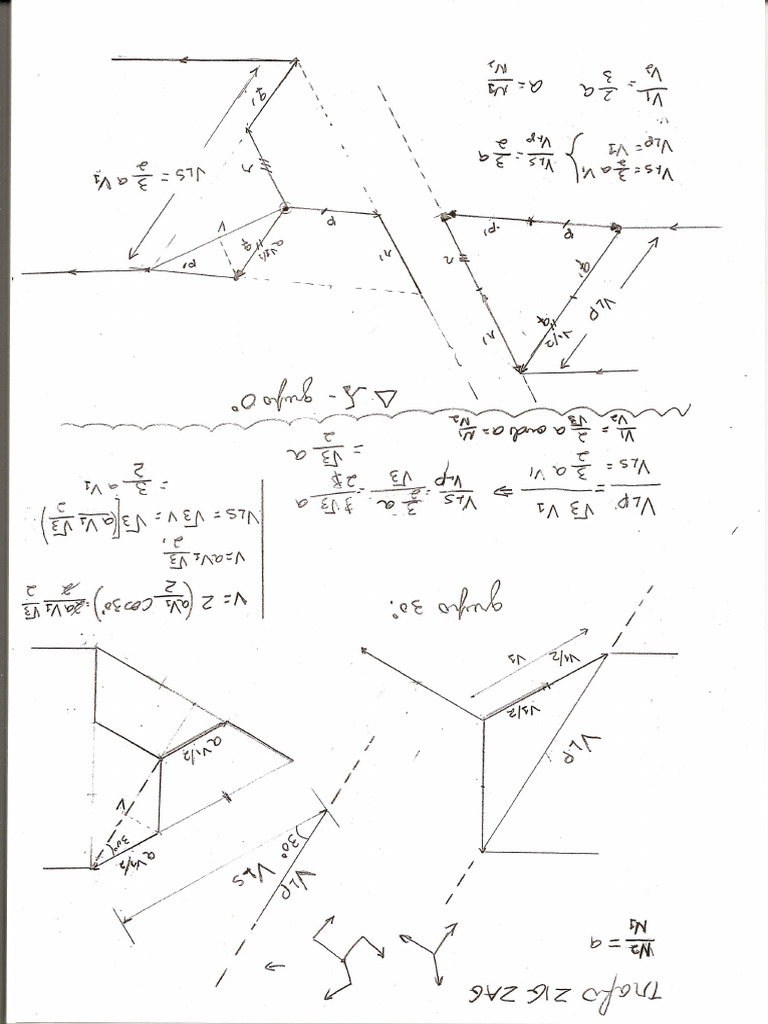 Trafo ZIG ZAG
N2/N1 = a
⇒
VLp
30°
VLS
aV1/2
30°
V
aV1/2
VLp
V1/2
V1/2
V1
grupo 30°.
V = 2 (aV1/2 cos30°) = 2aV1√3/2 2
V = aV1√3/2,
VLS = √3 V = √3 [(aV1/2 √3/2)
= 3/2 aV1
VLp/VLS = √3 V1 / 3/2 a V1 ⇒ VLS/VLp = 3/2 a / √3 = √3 a / 2
= √3/2 a
V1/V2 = 2/√3 a and a = N1/N2
Δ - grupo 0°
VLp
V1/2
q
q'
n'
n
p
p'
n'
p
aV1/2
q
V
p'
n
q'
VLS = 3/2 aV1
VLS = 3/2 a V1
VLp = V1
VLS/VLp = 3/2 a
V1/V2 = 2/3 a
a = N1/N2